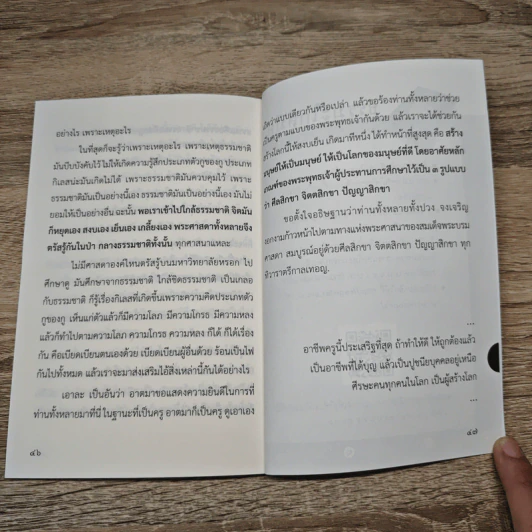 อย่างไร เพราะเหตุอะไร
ในที่สุดก็จะรู้ว่าเพราะเหตุอะไร เพราะเหตุธรรมชาติ
มันบีบบังคับไว้ ไม่ให้เกิดความรู้สึกประเภทตัวกูของกู ประเภท
กิเลสน่ะมันเกิดไม่ได้ เพราะธรรมชาติมันควบคุมไว้ เพราะ
ธรรมชาติมันเป็นอย่างนี้เอง ธรรมชาติมันเป็นอย่างนี้เอง มันไม่
ยอมให้เป็นอย่างอื่น ฉะนั้น พอเราเข้าไปใกล้ธรรมชาติ จิตมัน
ก็หยุดเอง สงบเอง เย็นเอง เกลี้ยงเอง พระศาสดาทั้งหลายจึง
ตรัสรู้กันในป่า กลางธรรมชาติทั้งนั้น ทุกศาสนาแหละ
ไม่มีศาสดาองค์ไหนตรัสรู้บนมหาวิทยาลัยหรอก ไป
ศึกษาดู มันศึกษาจากธรรมชาติ ใกล้ชิดธรรมชาติ เป็นเกลอ
กับธรรมชาติ ก็รู้เรื่องกิเลสที่เกิดขึ้นเพราะความคิดประเภทตัว
กูของกู เห็นแก่ตัวแล้วก็มีความโลภ มีความโกรธ มีความหลง
แล้วก็ทำไปตามความโลภ ความโกรธ ความหลง ก็ได้ ก็ได้เรื่อง
กัน คือเบียดเบียนตนเองด้วย เบียดเบียนผู้อื่นด้วย ร้อนเป็นไฟ
กันไปทั้งหมด แล้วเราจะมาส่งเสริมไอ้สิ่งเหล่านี้กันได้อย่างไร
เอาละ เป็นอันว่า อาตมาขอแสดงความยินดีในการที่
ท่านทั้งหลายมาที่นี่ ในฐานะที่เป็นครู อาตมาก็เป็นครู ดูเอาเอง
๔๖
ว่าแบบเดียวกันหรือเปล่า แล้วขอร้องท่านทั้งหลายว่าช่วย
เป็นครูตามแบบของพระพุทธเจ้ากันด้วย แล้วเราจะได้ช่วยกัน
สร้างโลกนี้ให้สงบเย็น เกิดมาทีหนึ่ง ได้ทำหน้าที่สูงสุด คือ สร้าง
มนุษย์ให้เป็นมนุษย์ ให้เป็นโลกของมนุษย์ที่ดี โดยอาศัยหลัก
เกณฑ์ของพระพุทธเจ้าผู้ประทานการศึกษาไว้เป็น ๓ รูปแบบ
ว่า ศีลสิกขา จิตตสิกขา ปัญญาสิกขา
ขอตั้งใจอธิษฐานว่าท่านทั้งหลายทั้งปวง จงเจริญ
งอกงามก้าวหน้าไปตามทางแห่งพระศาสนาของสมเด็จพระบรม
ศาสดา สมบูรณ์อยู่ด้วยศีลสิกขา จิตตสิกขา ปัญญาสิกขา ทุก
ทิวาราตรีกาลเทอญ.
...
อาชีพครูนี้ประเสริฐที่สุด ถ้าทำให้ดี ให้ถูกต้องแล้ว
เป็นอาชีพที่ได้บุญ แล้วเป็นปูชนียบุคคลอยู่เหนือ
ศีรษะคนทุกคนในโลก เป็นผู้สร้างโลก
...
๔๗